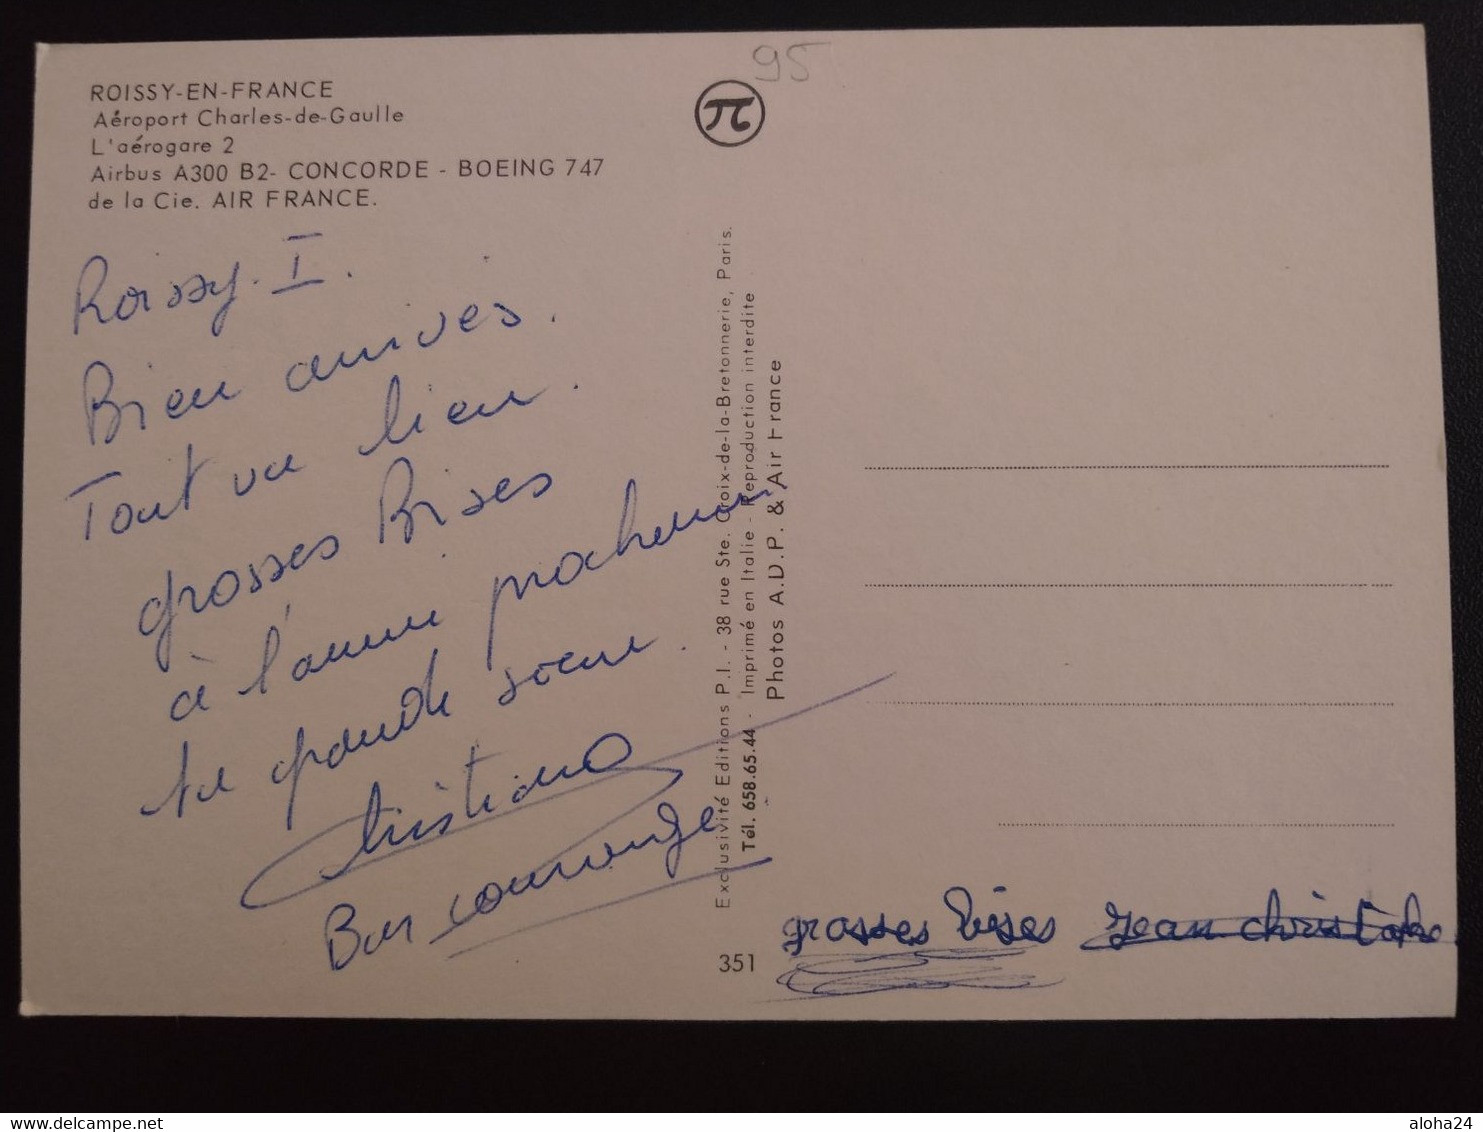 95
ROISSY-EN-FRANCE
Aéroport Charles-de-Gaulle
L'aérogare 2
Airbus A300 B2- CONCORDE - BOEING 747
de la Cie. AIR FRANCE.
π
Roissy. I.
Bien arrivés.
Tout va bien.
grosses Bises
à l'année prochaine
ta grande soeur.
Christiane
Bon courage
Exclusivité Editions P.I. - 38 rue Ste. Croix-de-la-Bretonnerie, Paris.
Tél. 658.65.44 - Imprimé en Italie - Reproduction interdite
Photos A.D.P. & Air France
351
grosses bises Jean christophe
delcampe.net
aloha24